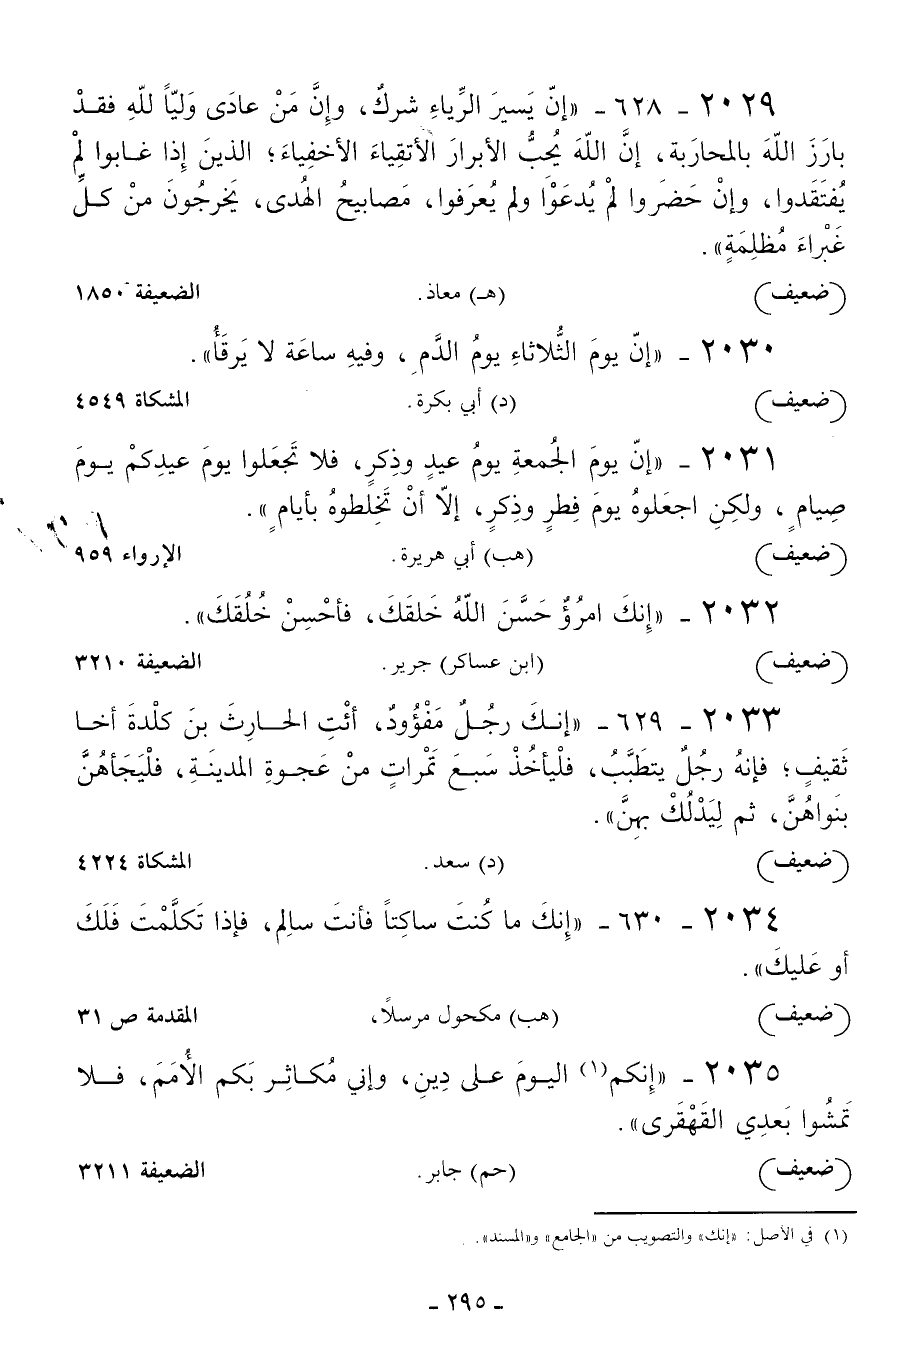 ٢٠٢٩ ـ ٦٢٨ ـ «إنّ يَسيرَ الرِّياءِ شركٌ، وإِنَّ مَنْ عادَى وَليّاً للّهِ فقـدْ
بارَزَ اللّهَ بالمحارَبة، إنَّ اللّهَ يُحبُّ الأبرارَ الأتقِياءَ الأخفِياءَ؛ الذينَ إِذا غـابوا لمْ
يُفتَقَدوا، وإنْ حَضَروا لمْ يُدعَوْا ولم يُعرَفوا، مَصابيحُ الهُدى، يَخرجُونَ منْ كـلِّ
غَبْراءَ مُظلِمَةٍ».
(ضعيف) (هـ) معاذ. الضعيفة ١٨٥٠
٢٠٣٠ ـ «إنّ يومَ الثُّلاثاءِ يومُ الدَّمِ، وفيهِ ساعَة لا يَرقَأُ».
(ضعيف) (د) أبي بكرة. المشكاة ٤٥٤٩
٢٠٣١ ـ «إنّ يومَ الجُمعةِ يومُ عيدٍ وذِكرٍ، فلا تَجعَلوا يومَ عيدِكمْ يـومَ
صِيامٍ، ولكِنِ اجعَلوهُ يومَ فِطرٍ وذِكرٍ، إلاّ أنْ تَخلِطوهُ بأيامٍ».
(ضعيف) (هب) أبي هريرة. الإرواء ٩٥٩
٢٠٣٢ ـ «إِنكَ امرُؤٌ حَسَّنَ اللّهُ خَلقَكَ، فأحْسِنْ خُلُقَكَ».
(ضعيف) (ابن عساكر) جرير. الضعيفة ٣٢١٠
٢٠٣٣ ـ ٦٢٩ ـ «إنـكَ رجُـلٌ مَفْؤُودٌ، أئْتِ الحـارِثَ بنَ كلْدةَ أخـا
ثَقيفٍ؛ فإنهُ رجُلٌ يتطَبَّبُ، فلْيأخُذْ سَبعَ تَمْراتٍ منْ عَجـوةِ المدينَـةِ، فلْيَجَأهُنَّ
بنَواهُنَّ، ثم لِيَدْلُكْ بهنَّ».
(ضعيف) (د) سعد. المشكاة ٤٢٢٤
٢٠٣٤ ـ ٦٣٠ ـ «إِنكَ ما كُنتَ ساكِتاً فأنتَ سالِم، فإذا تَكلَّمْتَ فَلَكَ
أو عَليكَ».
(ضعيف) (هب) مكحول مرسلاً، المقدمة ص ٣١
٢٠٣٥ ـ «إِنكم(١) اليـومَ عـلى دِينٍ، وإني مُكـاثِـر بَكم الأُمَمَ، فـلا
تَمشُوا بَعدِي القَهْقَرى».
(ضعيف) (حم) جابر. الضعيفة ٣٢١١
(١) في الأصل: «إنك» والتصويب من «الجامع» و«المسند».
ـ ٢٩٥ ـ